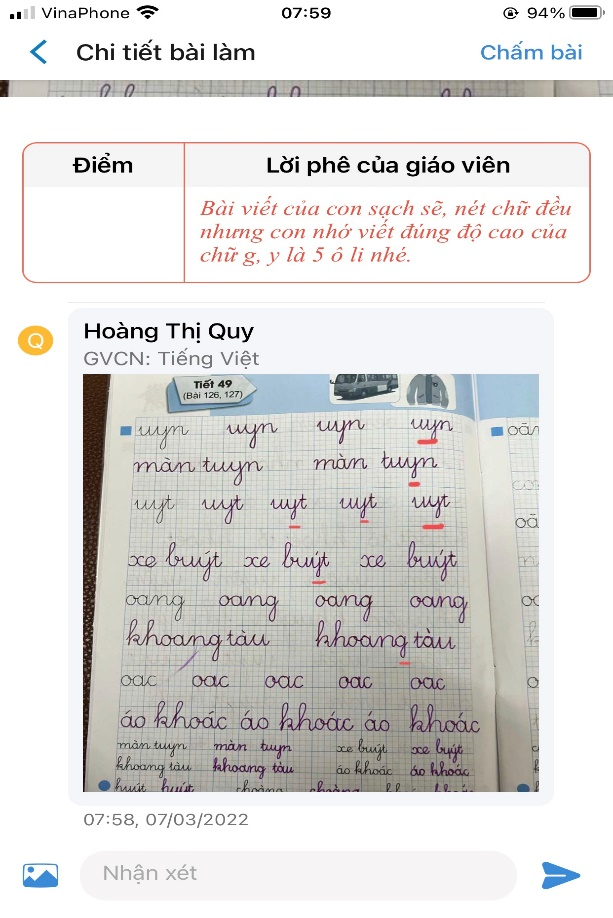 VinaPhone 07:59 94%
Chi tiết bài làm Chấm bài
Điểm Lời phê của giáo viên
Bài viết của con sạch sẽ, nét chữ đều
nhưng con nhớ viết đúng độ cao của
chữ g, y là 5 ô li nhé.
Q
Hoàng Thị Quy
GVCN: Tiếng Việt
Tiết 49
(Bài 126, 127)
uyn uyn uyn uyn oăn
màn tuyn màn tuyn
uyt uyt uyt uyt uyt
xe buýt xe buýt xe buýt
oang oang oang oang
khoang tàu khoang tàu
oac oac oac oac oac
áo khoác áo khoác áo khoác
màn tuyn màn tuyn xe buýt xe buýt
khoang tàu khoang tàu áo khoác áo khoác
huýt huýt
07:58, 07/03/2022
Nhận xét